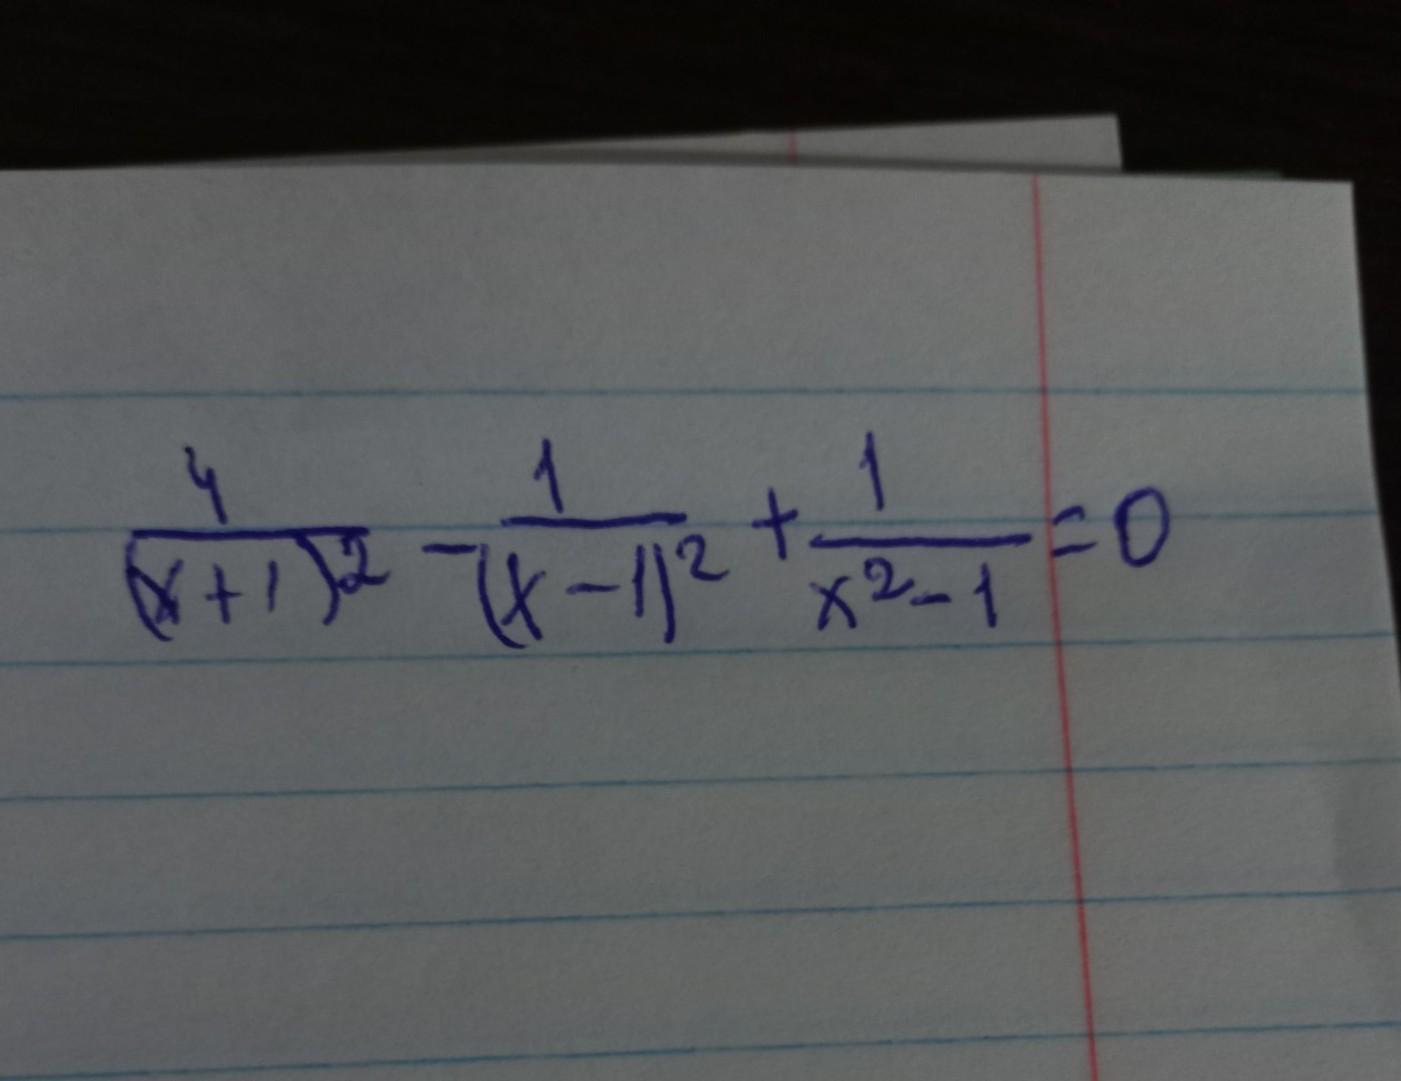 4/(x+1)² - 1/(x-1)² + 1/(x²-1) = 0